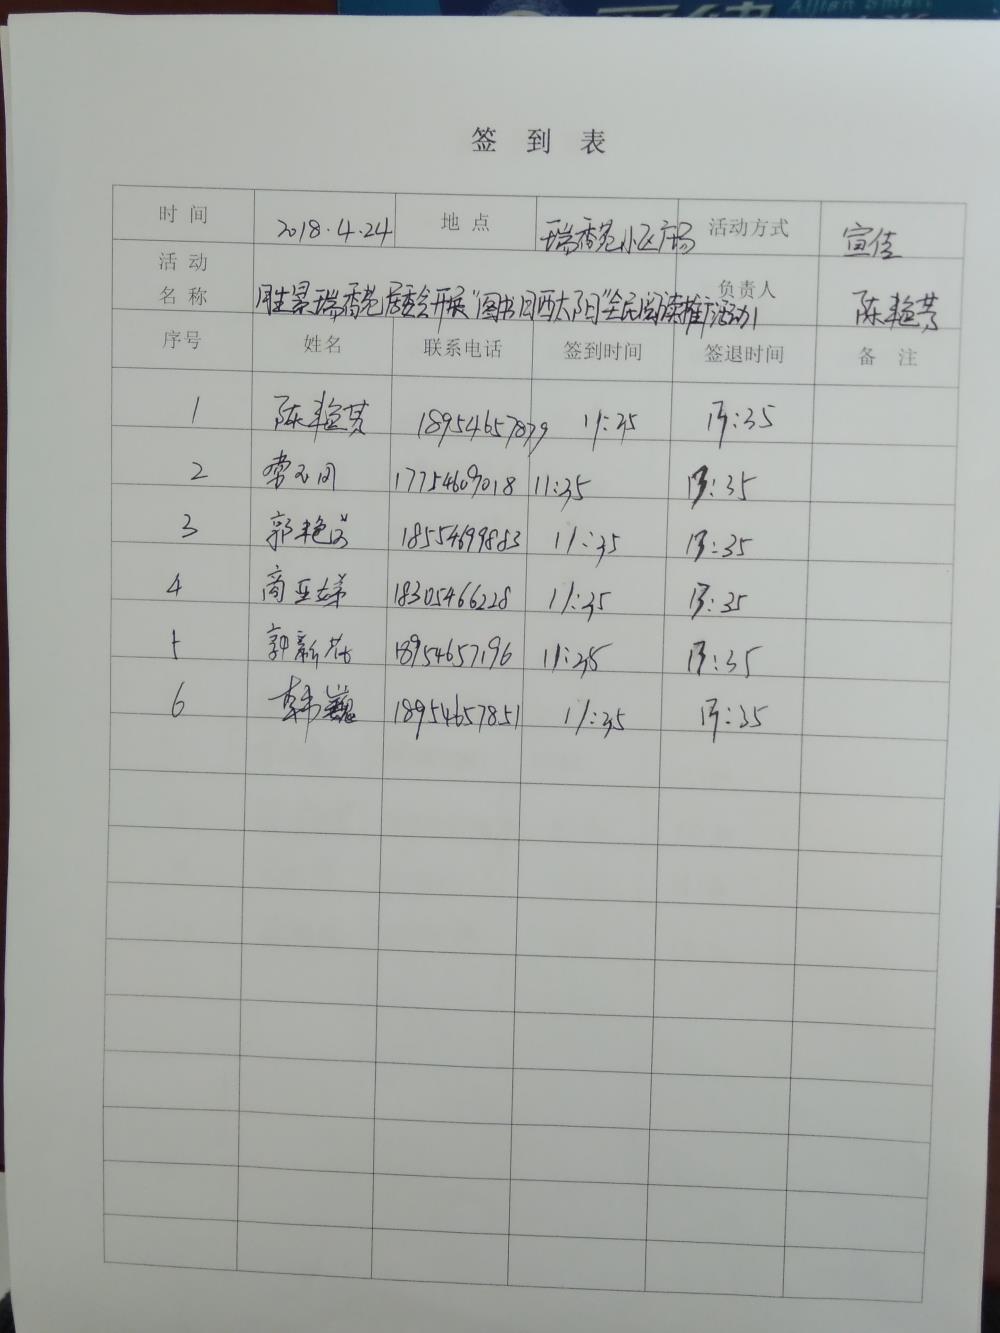 签 到 表
时 间 2018.4.24 地 点 瑞香苑小区广场 活动方式 宣传
活 动
名 称 胜景瑞香苑居委会开展"图书日晒太阳"全民阅读推广活动 负责人 陈艳芳
序号 姓名 联系电话 签到时间 签退时间 备 注
1 陈艳芳 18954657879 11:35 13:35
2 17754609018 11:35 13:35
3 郭艳 18554699883 11:35 13:35
4 商亚娣 18305466228 11:35 13:35
5 郭新花 18954657196 11:35 13:35
6 韩巍 18954657851 11:35 13:35